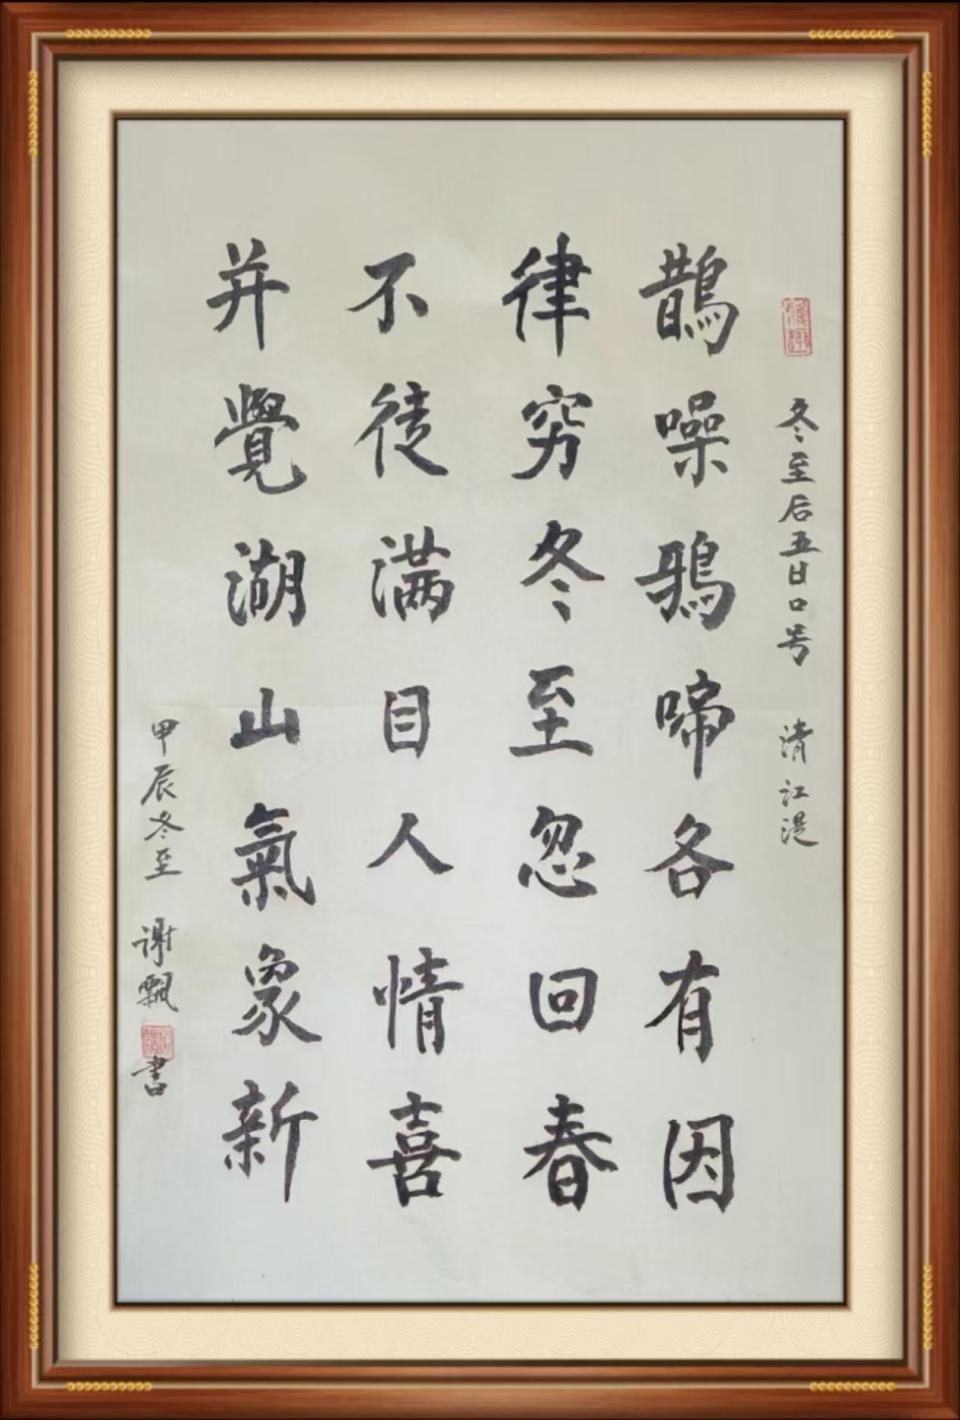 冬至后五日口号 清 江湜
鵲噪鴉啼各有因
律穷冬至忽回春
不徒满目人情喜
并覺湖山氣象新
甲辰冬至 谢飘書